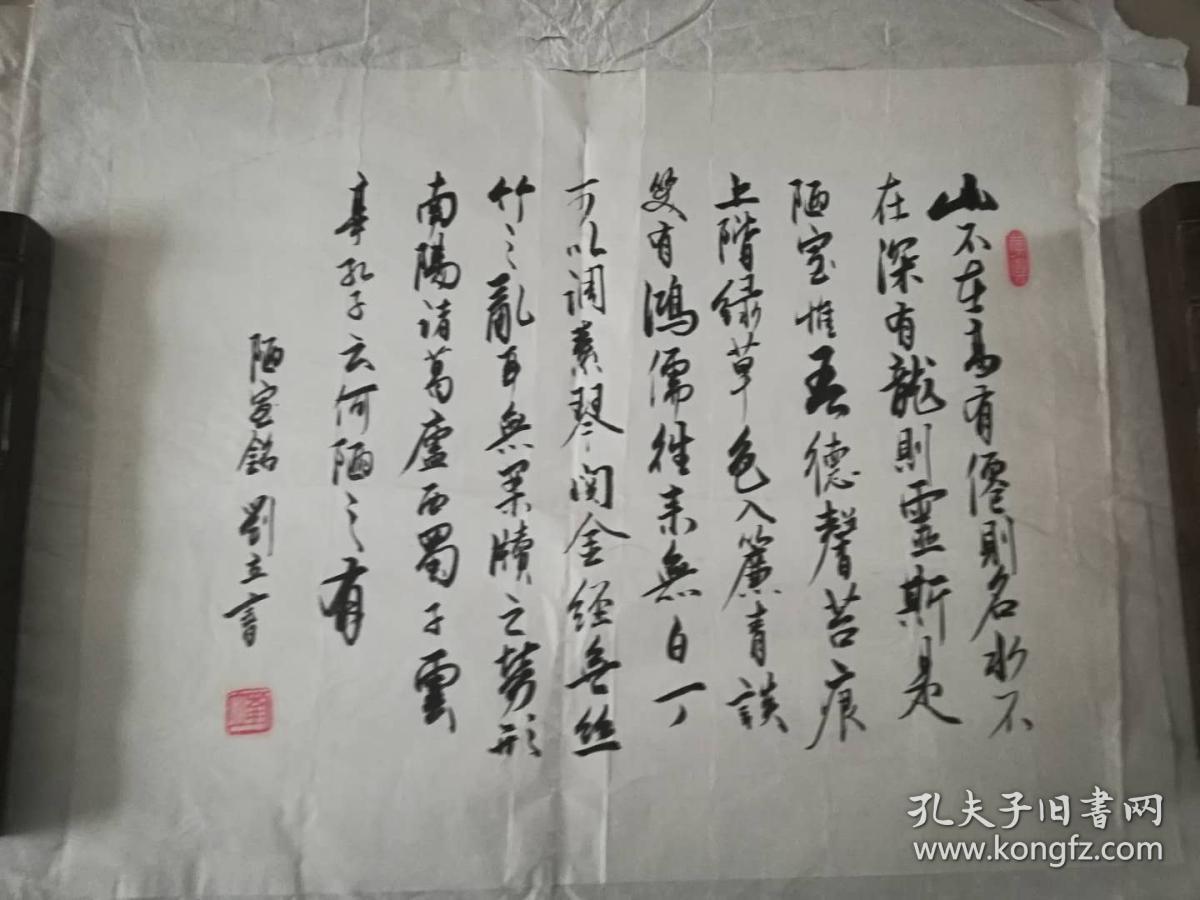 山不在高有僊則名水不
在深有龍則靈斯是
陋室惟吾德馨苔痕
上階绿草色入簾青談
笑有鴻儒往来無白丁
可以调素琴閲金經無丝
竹之亂耳無案牘之劳形
南陽诸葛廬西蜀子雲
亭孔子云何陋之有
陋室銘 劉立書
孔夫子旧書网
www.kongfz.com